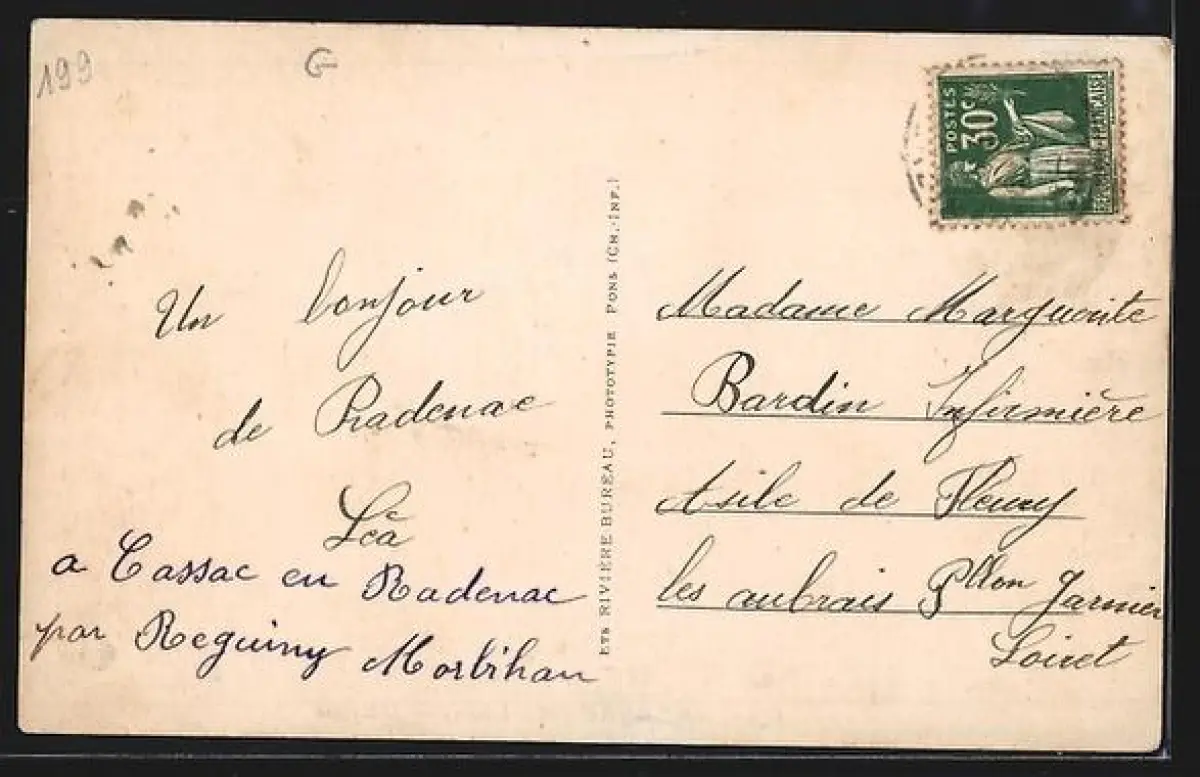 199
G
POSTES
30c
FRANÇAISE
Un bonjour
de Radenac
Léa
a Cassac en Radenac
par Reguiny Morbihan
ETS RIVIÈRE BUREAU, PHOTOTYPIE PONS (CH.-INF.)
Madame Marguerite
Bardin Infirmière
Asile de Fleury
les aubrais Pllon Jarmier
Loiret